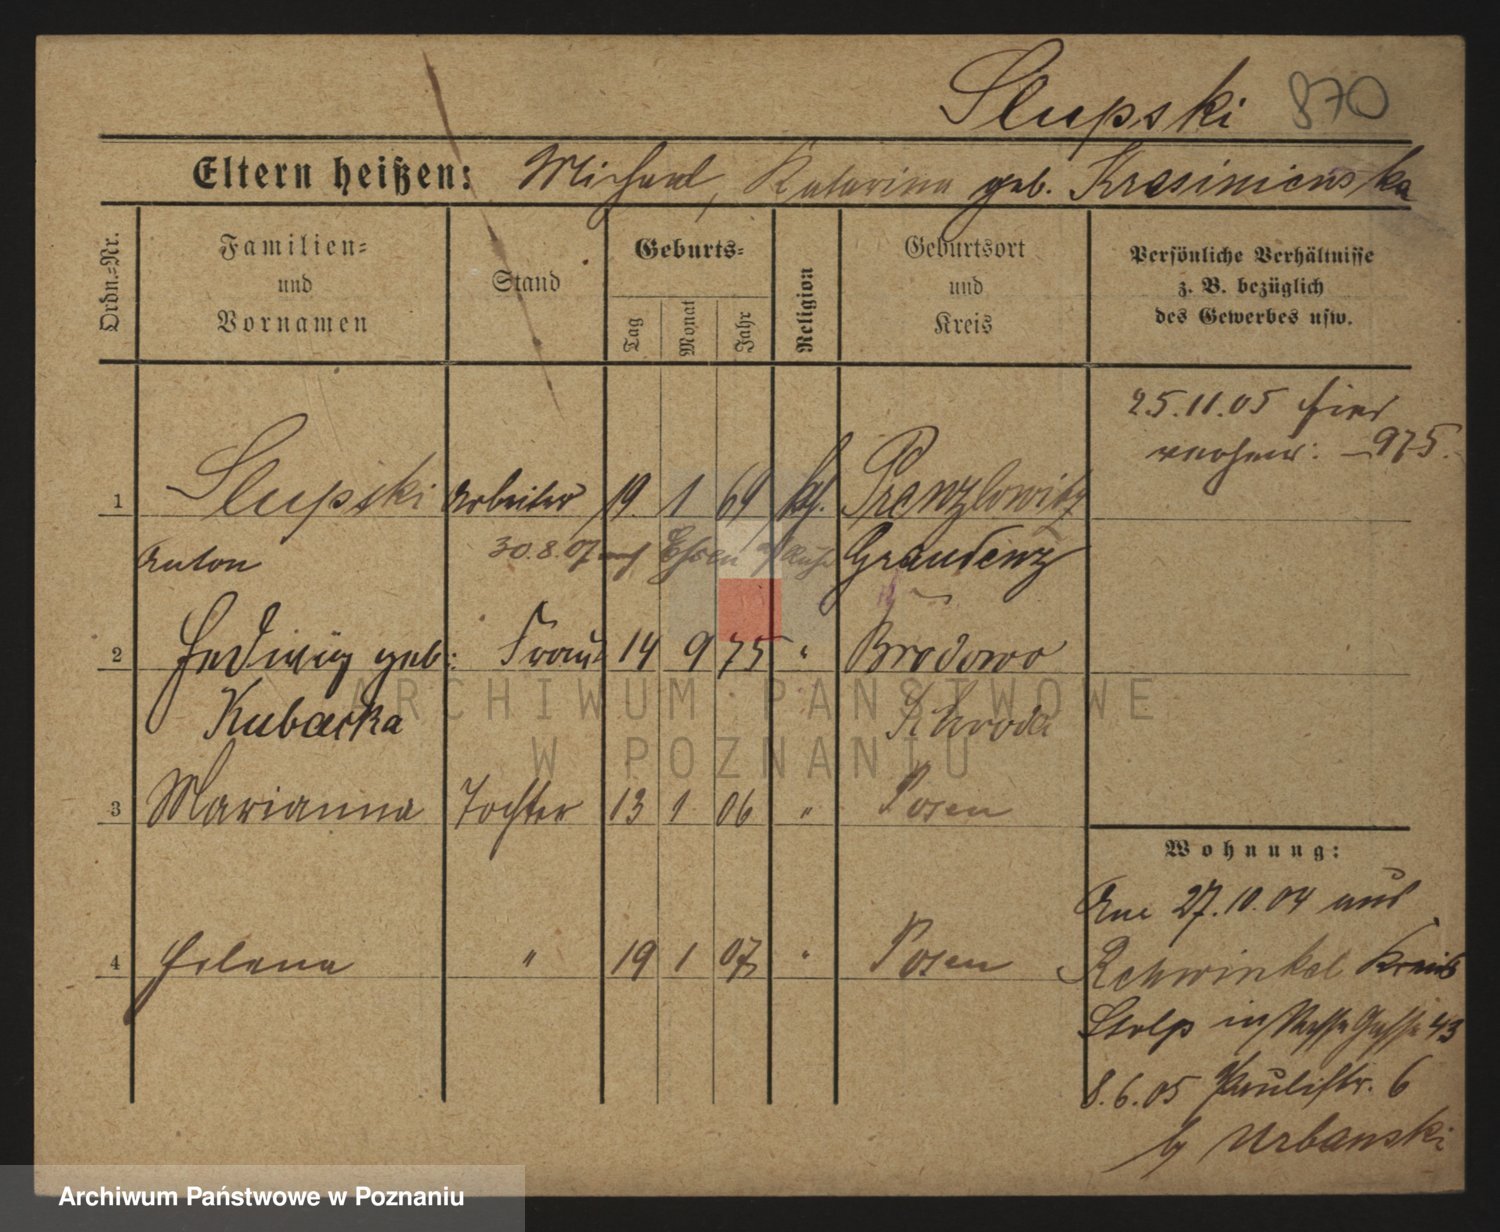 Slupski 870
Eltern heißen: Michael, Katarina geb. Krasiniewska
Ordn.=Nr.
Familien=
und
Vornamen
Stand
Geburts=
Tag
Monat
Jahr
Religion
Geburtsort
und
Kreis
Persönliche Verhältnisse
z. B. bezüglich
des Gewerbes usw.
25.11.05 hier
975.
1 Slupski Arbeiter 19 1 69 kath.
Anton 30.8.07 Graudenz
2 Hedwig geb: Frau 14 9 75 " Brodowo
Kubacka Schroda
3 Marianna Tochter 13 1 06 " Posen
4 Helena " 19 1 07 " Posen
Wohnung:
Am 27.10.04 aus
Rehwinkel Kreis
Stolp in 43
8.6.05 Paulistr. 6
b/ Urbanski
ARCHIWUM PAŃSTWOWE
W POZNANIU
Archiwum Państwowe w Poznaniu